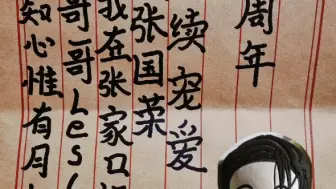 周年
续宠爱
张国荣
我在张家口
哥哥Les
知心惟有月